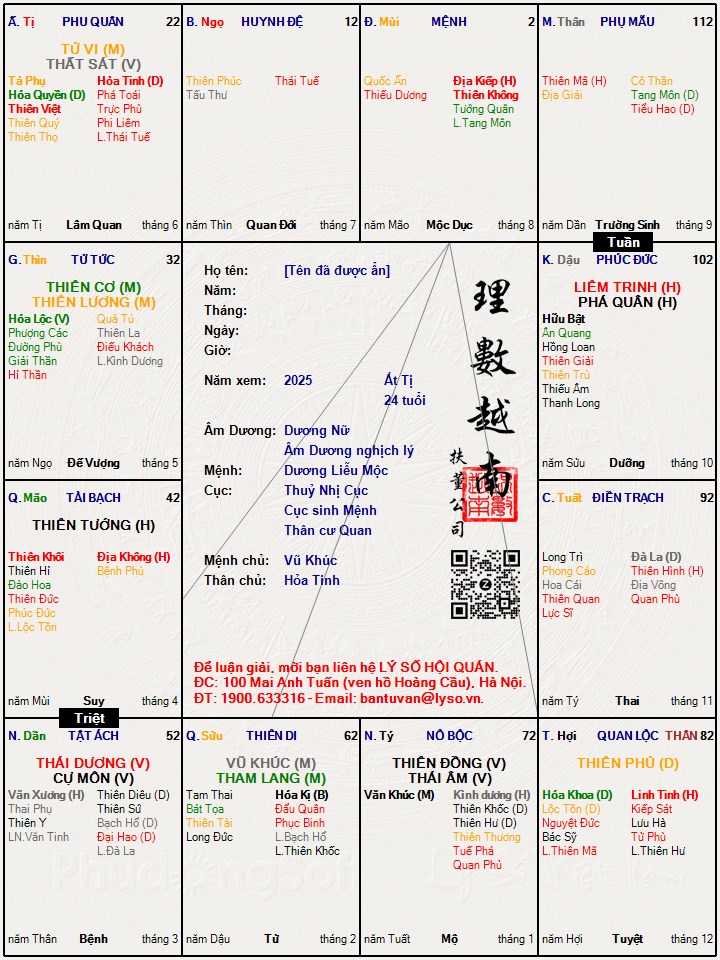 Ấ. Tị PHU QUÂN 22
TỬ VI (M)
THẤT SÁT (V)
Tả Phụ Hỏa Tinh (D)
Hóa Quyền (D) Phá Toái
Thiên Việt Trực Phù
Thiên Quý Phi Liêm
Thiên Thọ L.Thái Tuế
năm Tị Lâm Quan tháng 6
B. Ngọ HUYNH ĐỆ 12
Thiên Phúc Thái Tuế
Tấu Thư
năm Thìn Quan Đới tháng 7
Đ. Mùi MỆNH 2
Quốc Ấn Địa Kiếp (H)
Thiếu Dương Thiên Không
Tướng Quân
L.Tang Môn
năm Mão Mộc Dục tháng 8
M. Thân PHỤ MẪU 112
Thiên Mã (H) Cô Thần
Địa Giải Tang Môn (D)
Tiểu Hao (D)
năm Dần Trường Sinh tháng 9
Tuần
G. Thìn TỬ TỨC 32
THIÊN CƠ (M)
THIÊN LƯƠNG (M)
Hóa Lộc (V) Quả Tú
Phượng Các Thiên La
Đường Phù Điếu Khách
Giải Thần L.Kình Dương
Hỉ Thần
năm Ngọ Đế Vượng tháng 5
Họ tên: [Tên đã được ẩn]
Năm:
Tháng:
Ngày:
Giờ:
Năm xem: 2025 Ất Tị
24 tuổi
Âm Dương: Dương Nữ
Âm Dương nghịch lý
Mệnh: Dương Liễu Mộc
Cục: Thuỷ Nhị Cục
Cục sinh Mệnh
Thân cư Quan
Mệnh chủ: Vũ Khúc
Thân chủ: Hỏa Tinh
理數越南
扶董公司
Để luận giải, mời bạn liên hệ LÝ SỐ HỘI QUÁN.
ĐC: 100 Mai Anh Tuấn (ven hồ Hoàng Cầu), Hà Nội.
ĐT: 1900.633316 - Email: bantuvan@lyso.vn.
K. Dậu PHÚC ĐỨC 102
LIÊM TRINH (H)
PHÁ QUÂN (H)
Hữu Bật
Ân Quang
Hồng Loan
Thiên Giải
Thiên Trù
Thiếu Âm
Thanh Long
năm Sửu Dưỡng tháng 10
Q. Mão TÀI BẠCH 42
THIÊN TƯỚNG (H)
Thiên Khôi Địa Không (H)
Thiên Hỉ Bệnh Phù
Đào Hoa
Thiên Đức
Phúc Đức
L.Lộc Tồn
năm Mùi Suy tháng 4
Triệt
C. Tuất ĐIỀN TRẠCH 92
Long Trì Đà La (D)
Phong Cáo Thiên Hình (H)
Hoa Cái Địa Võng
Thiên Quan Quan Phù
Lực Sĩ
năm Tý Thai tháng 11
N. Dần TẬT ÁCH 52
THÁI DƯƠNG (V)
CỰ MÔN (V)
Văn Xương (H) Thiên Diêu (D)
Thai Phụ Thiên Sứ
Thiên Y Bạch Hổ (D)
LN.Văn Tinh Đại Hao (D)
L.Đà La
năm Thân Bệnh tháng 3
Q. Sửu THIÊN DI 62
VŨ KHÚC (M)
THAM LANG (M)
Tam Thai Hóa Kị (B)
Bát Tọa Đẩu Quân
Thiên Tài Phục Binh
Long Đức L.Bạch Hổ
L.Thiên Khốc
năm Dậu Tử tháng 2
N. Tý NÔ BỘC 72
THIÊN ĐỒNG (V)
THÁI ÂM (V)
Văn Khúc (M) Kình dương (H)
Thiên Khốc (D)
Thiên Hư (D)
Thiên Thương
Tuế Phá
Quan Phủ
năm Tuất Mộ tháng 1
T. Hợi QUAN LỘC THÂN 82
THIÊN PHỦ (D)
Hóa Khoa (D) Linh Tinh (H)
Lộc Tồn (D) Kiếp Sát
Nguyệt Đức Lưu Hà
Bác Sỹ Tử Phù
L.Thiên Mã L.Thiên Hư
năm Hợi Tuyệt tháng 12